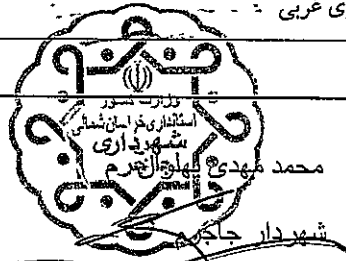 ی عربی
وزارت کشور
استانداری خراسان شمالی
شهرداری
جاجرم
محمد مهدی پهلوان
شهردار جاجرم